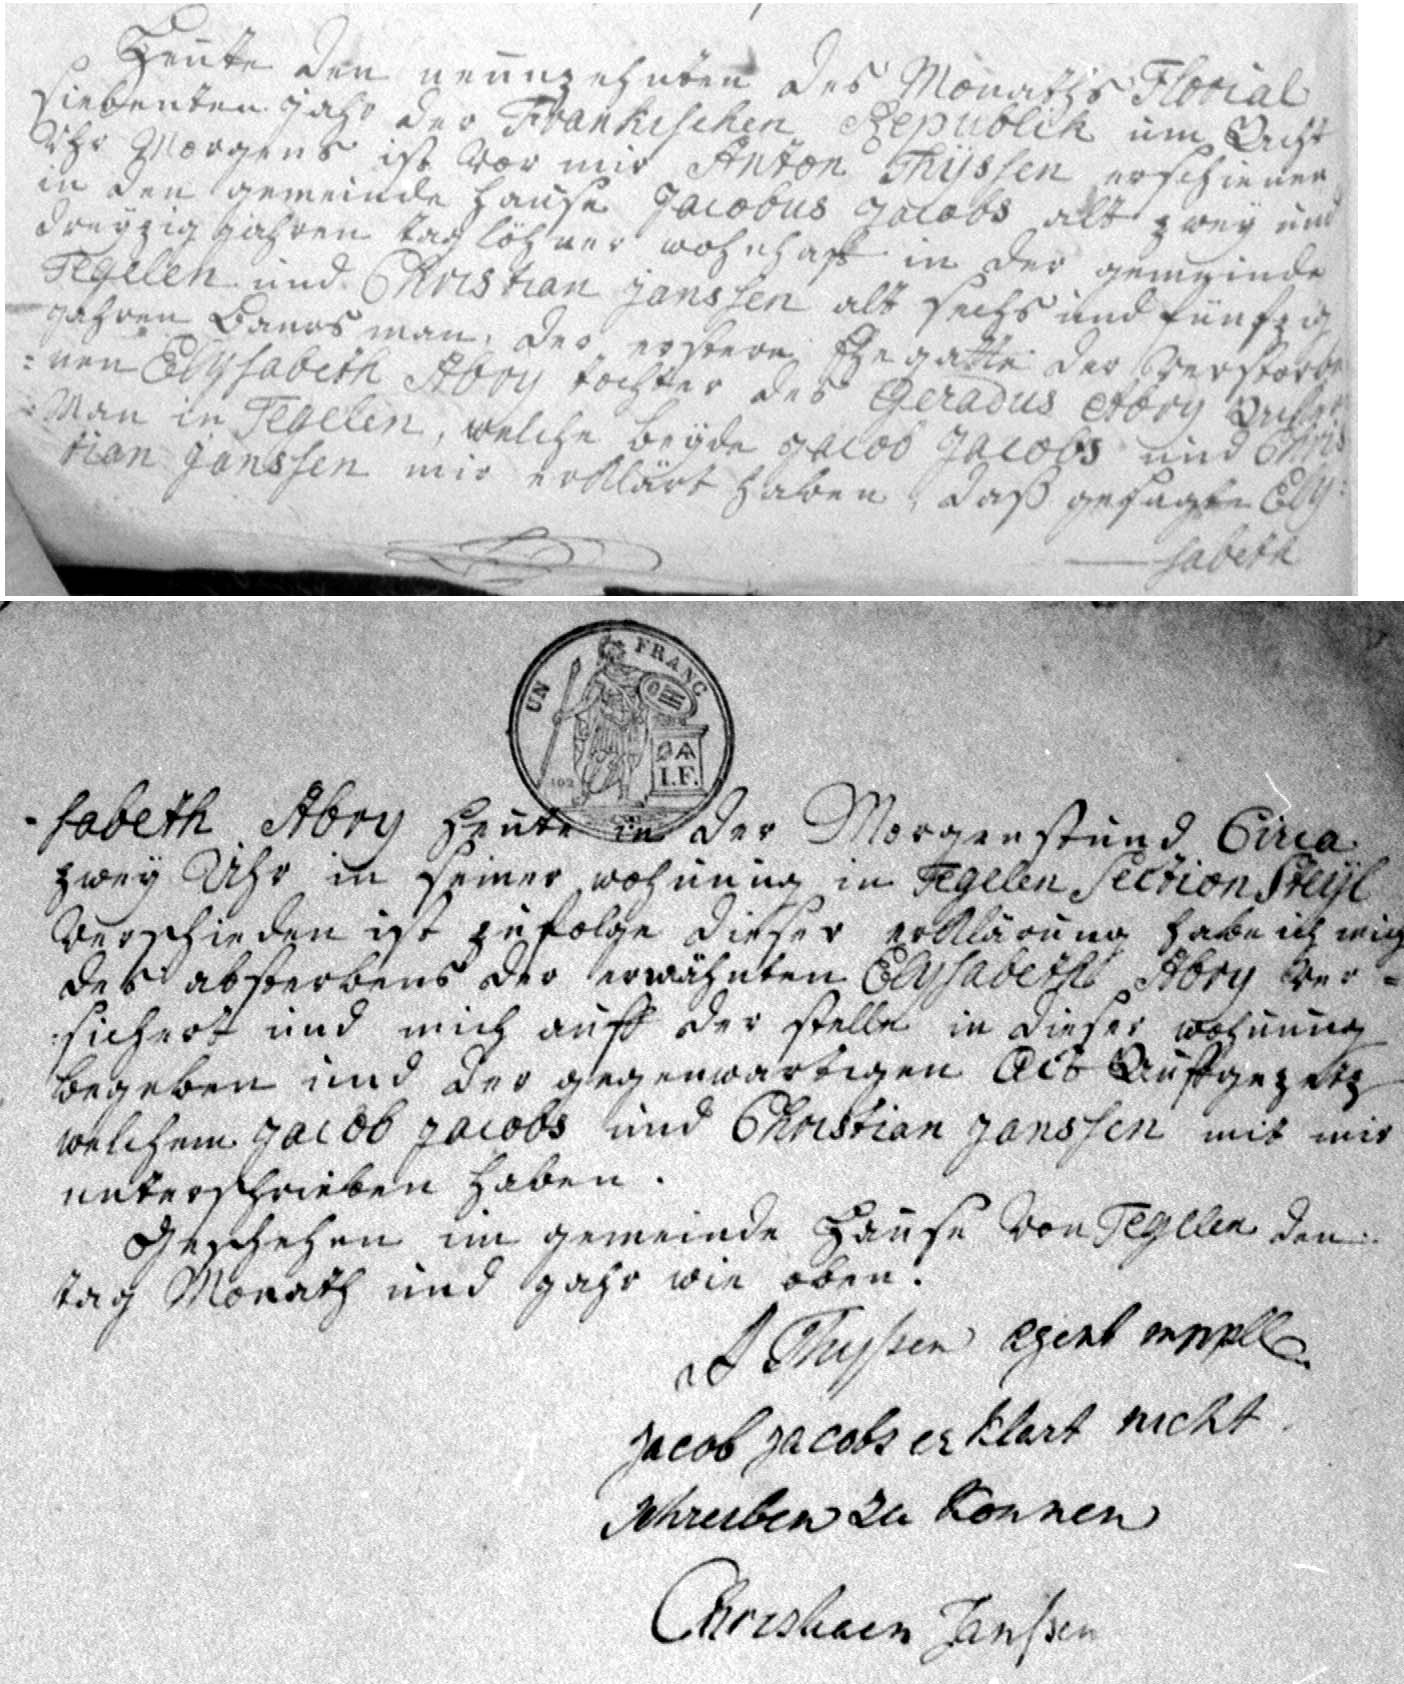 Heute den neunzehnten des Monaths Florial
siebenten jahr der Frankischen Republik um Acht
Uhr Morgens ist vor mir Anton Thijssen erschienen
in den gemeinde Hause Jacobus Jacobs alt zwey und
dreyzig jahren taglöhner wohnhaft in der gemeinde
Tegelen und Christian janssen alt sechs und fünfzig
jahren Baursman, der erstere Ehegatte der Verstorbe
=nen Elysabeth Abry tochter des Geradus Abry
Man in Tegelen, welche beyde jacob jacobs und Chris
tian janssen mir erklärt haben, daß gesagte Ely=
sabeth
UN FRANC
I.F.
-sabeth Abry Heute in der Morgenstund Circa
zwey Uhr in seiner wohnung in Tegelen Section Steijl
Verschieden ist zufolge dieser erklärung habe ich mich
des absterbens der erwähnten Elysabeth Abry ver=
sichert und mich auff der stelle in dieser wohnung
begeben und der gegenwartigen Act Auffgezetz
welchem jacob jacobs und Christian janssen mit mir
unterschrieben haben.
Geschehen im gemeinde Hause Von Tegelen den
tag Monath und jahr wie oben.
A Thyssen agent mppll
jacob jacobs erklart nicht
schreiben zu konnen
Christiaen Janssen